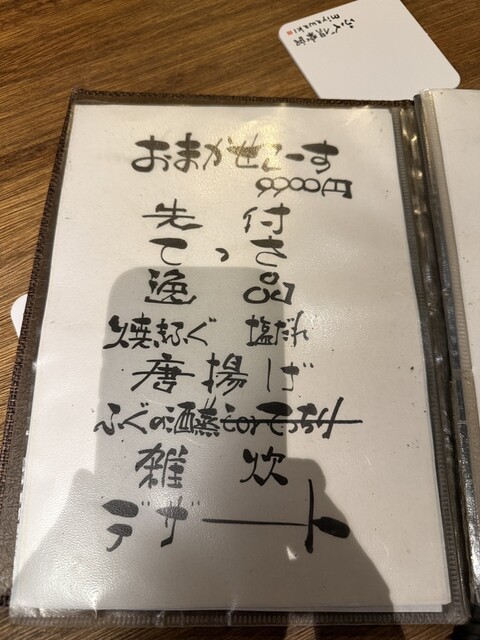 ふぐ倶楽部
miyawaki
おまかせこーす
9900円
先付
てっさ
逸品
焼きふぐ 塩だれ
唐揚げ
ふぐの酒蒸しorてっちり
雑炊
デザート